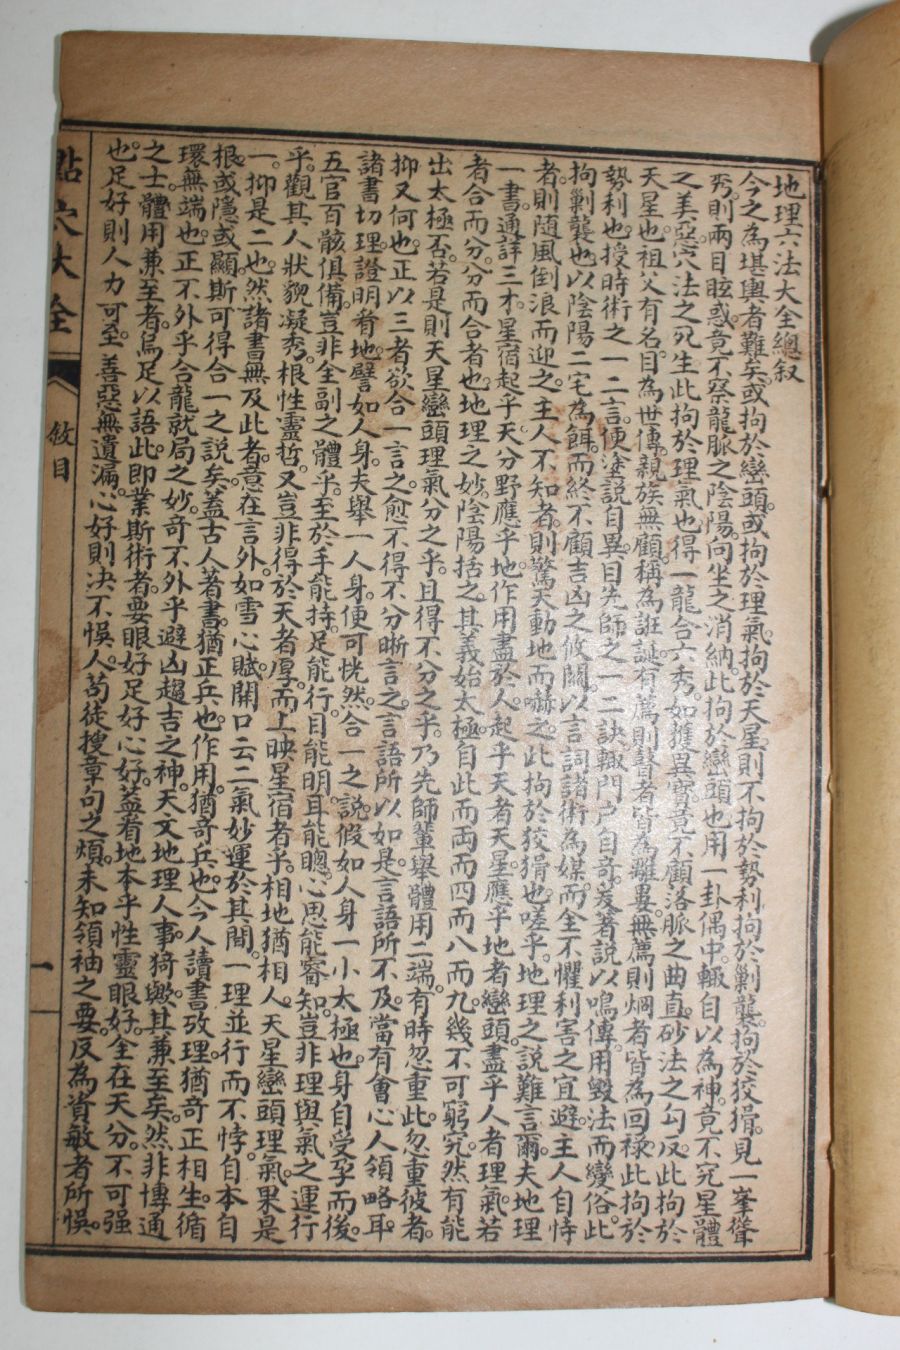 地理六法大全總叙
今之為堪輿者難矣。或拘於巒頭。或拘於理氣。拘於天星。則不拘於勢利。拘於剿襲。拘於狡猾。見一峯聳
秀。則兩目眩惑。竟不察龍脈之陰陽。向坐之消納。此拘於巒頭也。用一卦偶中。輙自以為神。竟不究星體
之美惡。穴法之死生。此拘於理氣也。得一龍合六秀。如獲異寶。竟不顧落脈之曲直。砂法之勾反。此拘於
天星也。祖父有名。目為世傳。親族無顧。稱為誑誕。有薦則瞽者皆為離婁。無薦則烱者皆為回祿。此拘於
勢利也。授時術之一二言。便塗說自異。目先師之一二訣。輙門户自奇。爰著說以鳴傳。用毁法而變俗。此
拘剿襲也。以陰陽二宅為餌。而終不顧吉凶之攸關。以言詞諸術為媒。而全不懼利害之宜避。主人自恃
者。則随風倒浪而迎之。主人不知者。則驚天動地而嚇之。此拘於狡猾也。嗟乎。地理之說難言爾。夫地理
一書。通詳三才。星宿起乎天。分野應乎地。作用盡於人。起乎天者天星。應乎地者巒頭。盡乎人者理氣。若
者合而分。分而合者也。地理之妙。陰陽括之。其義始太極。自此而両而四而八而九。幾不可窮究。然有能
出太極否。若是則天星巒頭理氣分之乎。且得不分之乎。乃先師輩舉體用二端。有時忽重此。忽重彼者。
抑又何也。正以三者欲合一言之。愈不得不分晰言之。言語所以如是。言語所不及。當有會心人領略耳。
諸書切理。證明肴地。譬如人身。夫舉一人身。便可恍然合一之說。假如人身一小太極也。身自受孕而後。
五官百骸俱備。豈非全副之體乎。至於手能持。足能行。目能明。耳能聰。心思能睿知。豈非理與氣之運行
乎。觀其人狀貌凝秀。根性靈哲。又豈非得於天者厚。而上映星宿者乎。相地猶相人。天星巒頭理氣。果是
一。抑是二也。然諸書無及此者。意在言外。如雪心賦。開口云二氣妙運於其間。一理並行而不悖。自本自
根。或隱或顯。斯可得合一之說矣。蓋古人著書。猶正兵也。作用。猶奇兵也。今人讀書攷理。猶奇正相生。循
環無端也。正不外乎合龍就局之妙。奇不外乎避凶趨吉之神。天文地理人事。猗歟。其兼至矣。然非博通
之士。體用兼至者。烏足以語此。即業斯術者。要眼好足好心好。蓋看地本乎性靈。眼好全在天分。不可强
也。足好則人力可至。善惡無遺漏。心好則决不悞人。苟徒搜章句之煩。未知領袖之要。反為資敏者所悞。
點穴大全
敘目
一